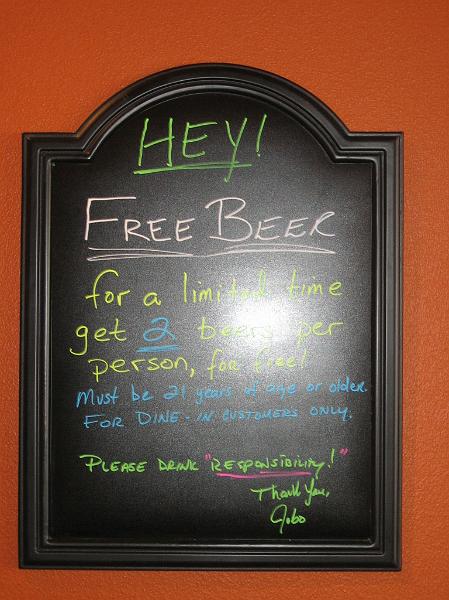 HEY!
FREE BEER
for a limited time
get 2 beers per
person, for free!
Must be 21 years of age or older.
FOR DINE-IN CUSTOMERS ONLY.
PLEASE DRINK "RESPONSIBILITY!"
Thank You,
Jobo